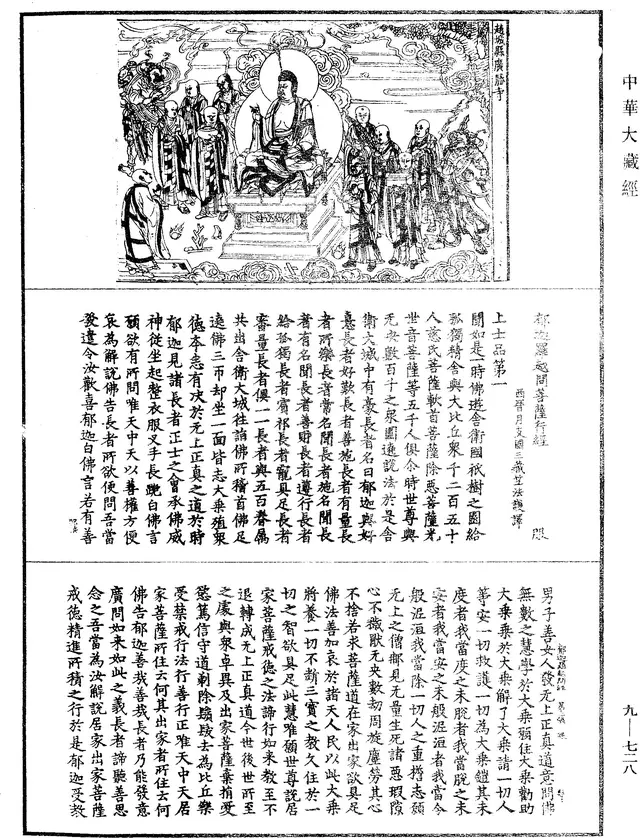 中華大藏經
趙城縣廣勝寺
郁迦羅越問菩薩行經
西晉月支國三藏竺法護譯
上士品第一
聞如是一時佛遊舍衛國祇樹之園給
孤獨精舍與大比丘衆千二百五十
人慈氏菩薩軟首菩薩除惡菩薩光
世音菩薩等五千人俱介時世尊與
无央數百千之衆圍遶說法於是舍
衛大城中有豪長者名曰郁迦與好
意長者好歎長者善施長者有量長
者所樂長者常名聞長者施名聞長
者有名聞長者善財長者遵行長者
給孤獨長者賓祁長者寵具足長者
審量長者俱一一長者與五百眷屬
共出舍衛大城往詣佛所稽首佛足
遶佛三帀却坐一面皆志大乘殖衆
德本悉有決於无上正真之道於時
郁迦見諸長者正士之會承佛威
神從坐起整衣服叉手長跪白佛言
願欲有所問唯天中天以善權方便
哀為解說佛告長者所欲便問吾當
發遣令汝歡喜郁迦白佛言若有善
男子善女人發无上正真道意問佛
無數之慧學於大乘頭住大乘勸助
大乘乘於大乘解了大乘請一切人
等安一切救護一切為大乘鎧其未
度者我當度之未脫者我當脫之未
安者我當安之未般泥洹者我當令
般泥洹我當除一切人之重擔志願
无上之僧那見无量生死諸惡瑕隙
心不微猒无央數劫周旋塵勞其心
不捨若求菩薩道在家出家欲具足
佛法善加哀於諸天人民以此大乘
將養一切不斷三寶之教久住於一
切之智欲具足此慧唯願世尊說居
家菩薩戒德之法諦行如來教至不
退轉成无上正真道今世後世所至
之處與衆卓異及出家菩薩棄捐受
慾篤信守道剃除鬚髮去為比丘樂
受禁戒行法行善行正唯天中天居
家菩薩所住云何其出家者所住云何
佛告郁迦善哉善哉長者乃能發意
廣問如來如此之義長者諦聽善思
念之吾當為汝解說居家出家菩薩
戒德精進所積之行於是郁迦受教
九—七二八